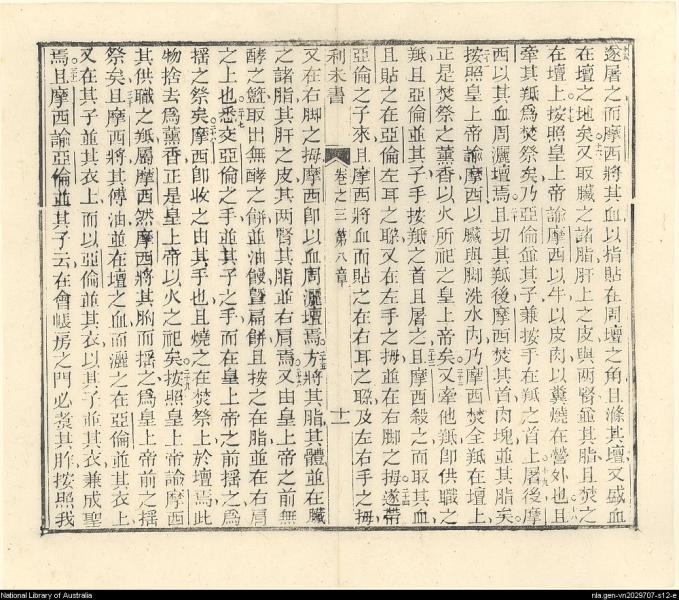 遂屠之而摩西將其血以指貼在周壇之角且滌其壇又盛血
在壇之地矣又取臟之諸脂肝上之皮與兩腎並其脂且焚之
在壇上按照皇上帝諭摩西以牛以皮肉以糞燒在營外也且
牽其羝爲焚祭矣乃亞倫並其子兼按手在羝之首上屠後摩
西以其血周灑壇焉且切其羝後摩西焚其首肉塊並其脂矣
按照皇上帝諭摩西以臟與脚洗水內乃摩西焚全羝在壇上
正是焚祭之薰香以火所祀之皇上帝矣又牽他羝即供職之
羝且亞倫並其子手按羝之首且屠之且摩西殺之而取其血
且貼之在亞倫左耳之聮又在左手之拇並在右脚之拇遂帶
亞倫之子來且摩西將血而貼之在右耳之聮及左右手之拇
利未書 卷之三 第八章 十一
又在右脚之拇摩西即以血周灑壇焉方將其脂其體並在臟
之諸脂其肝之皮其两腎其脂並右肩焉又由皇上帝之前無
酵之籃取出無酵之餅並油饅曁扁餅且按之在脂並在右肩
之上也悉交亞倫之手並其子之手而在皇上帝之前揺之爲
揺之祭矣摩西即收之由其手也且燒之在焚祭上於壇焉此
物捨去爲薰香正是皇上帝以火之祀矣按照皇上帝諭摩西
其供職之羝屬摩西然摩西將其胸而揺之爲皇上帝前之揺
祭矣且摩西將其傅油並在壇之血而灑之在亞倫並其衣上
又在其子並其衣上而以亞倫並其衣以其子並其衣兼成聖
焉且摩西諭亞倫並其子云在會帳房之門必煑其胙按照我
National Library of Australia
nla.gen-vn2029707-s12-e